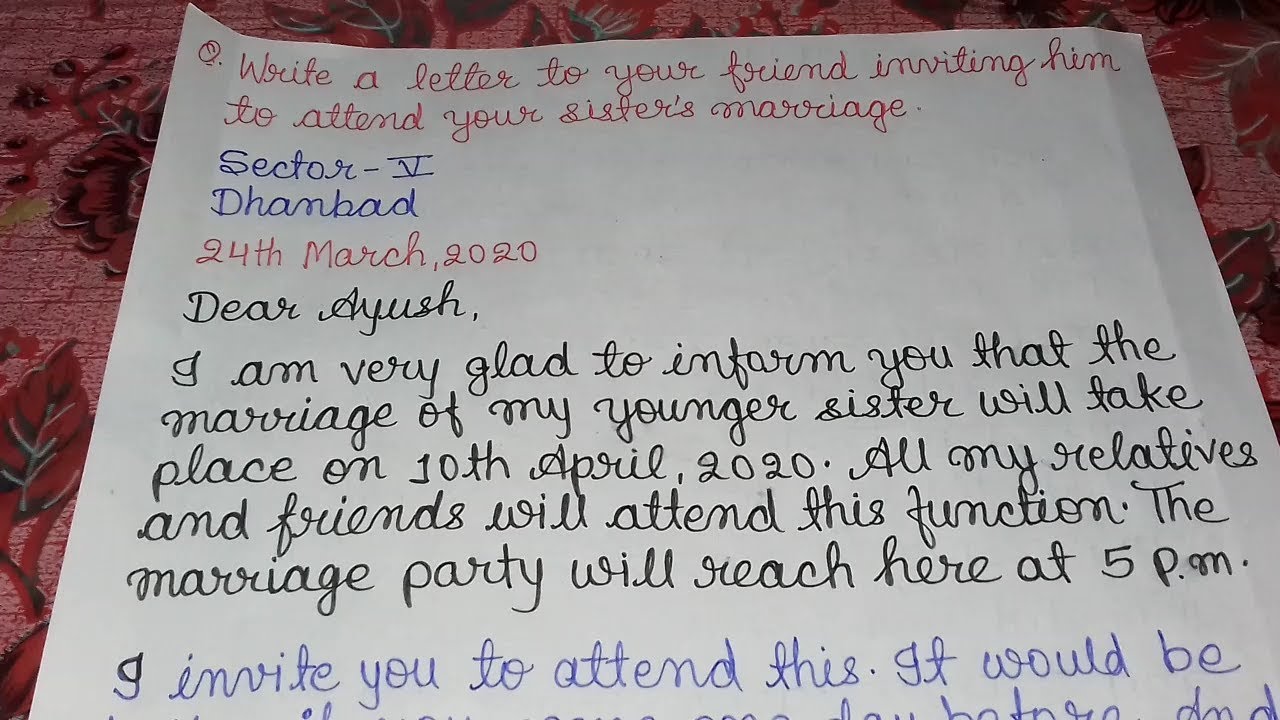 Q. Write a letter to your friend inviting him
to attend your sister's marriage.
Sector-V
Dhanbad
24th March, 2020
Dear Ayush,
I am very glad to inform you that the
marriage of my younger sister will take
place on 10th April, 2020. All my relatives
and friends will attend this function. The
marriage party will reach here at 5 p.m.
I invite you to attend this. It would be
if you come one day before. And